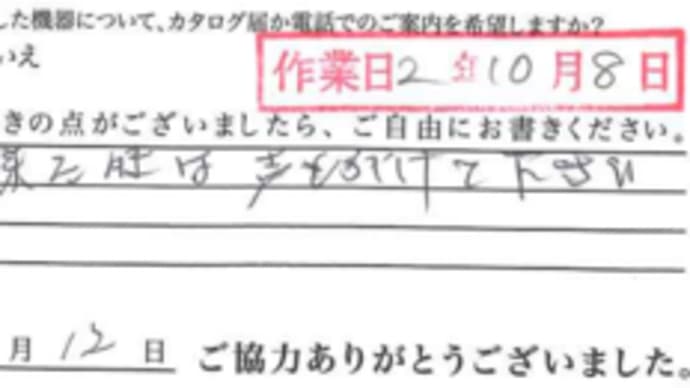 した機器について、カタログ届か電話でのご案内を希望しますか?
いえ
作業日2年10月8日
きの点がございましたら、ご自由にお書きください。
来た時は声をかけて下さい
月12日 ご協力ありがとうございました。